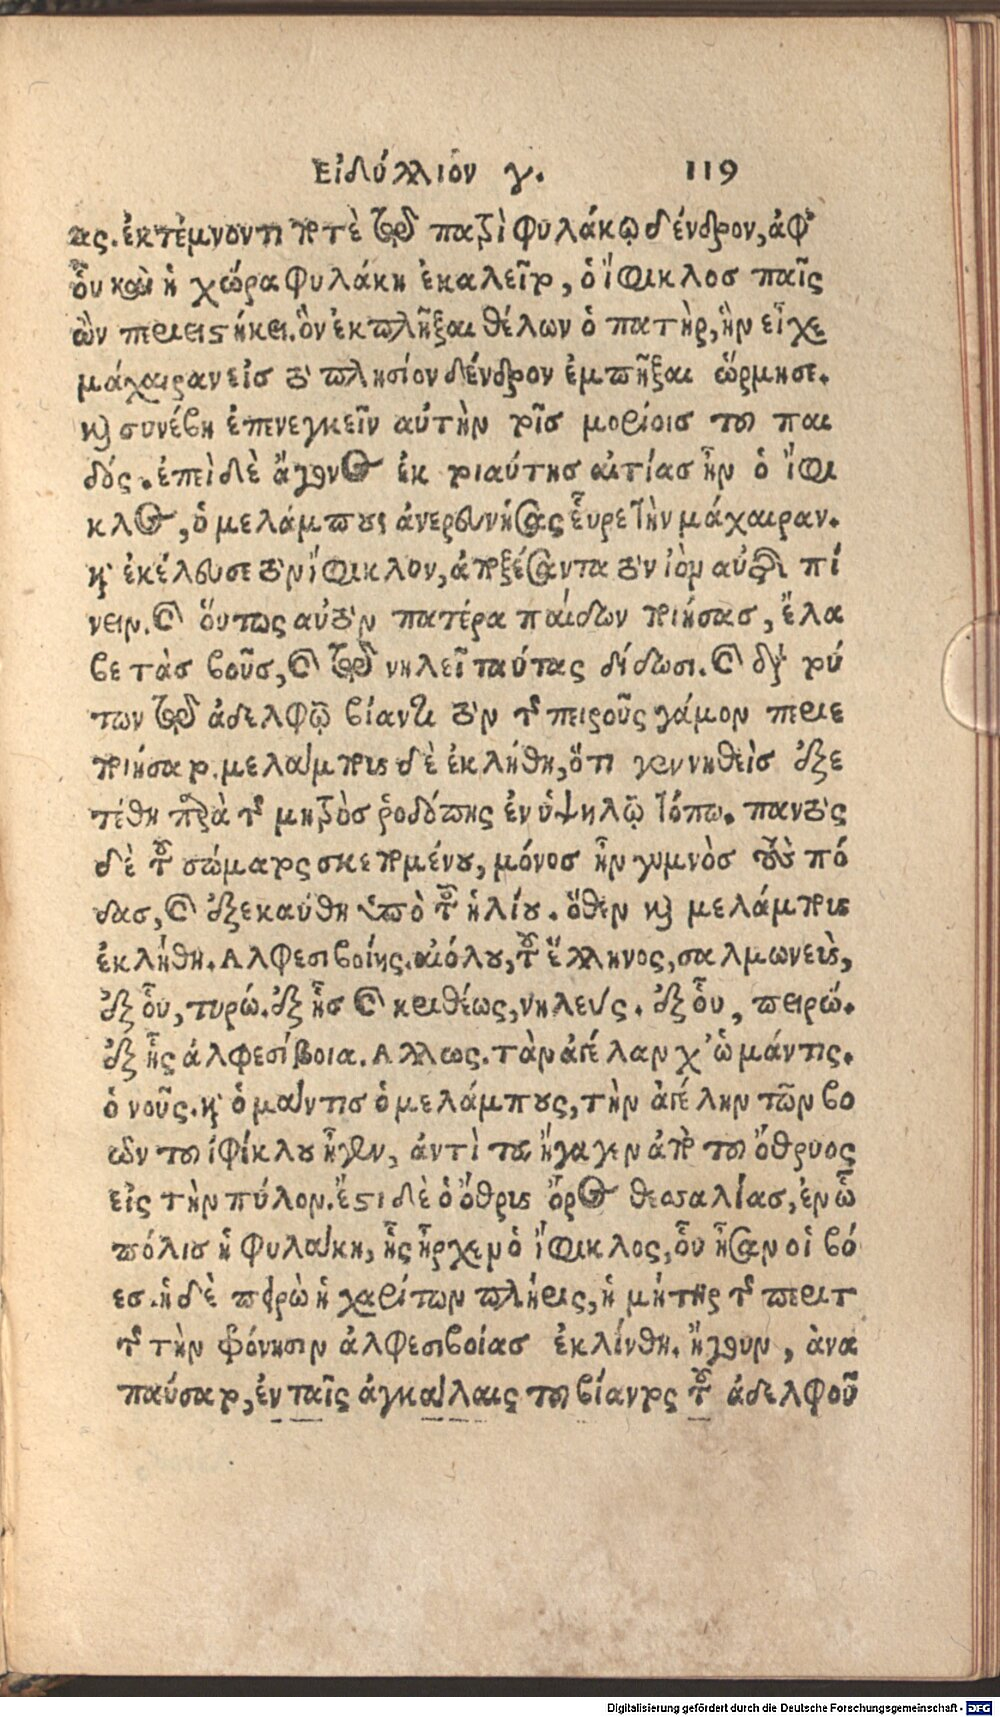 Εἰδύλλιον γ. 119
ας. ἐκτέμνοντι ποτὲ τῷ πατρὶ φυλάκῳ δένδρον, ἀφ'
οὗ καὶ ἡ χώρα φυλάκη ἐκαλεῖτο, ὁ ἴφικλος παῖς
ὢν περιειστήκει. ὃν ἐκπλῆξαι θέλων ὁ πατὴρ, ἣν εἶχε
μάχαιραν εἰς τὸ πλησίον δένδρον ἐμπῆξαι ὥρμησε.
καὶ συνέβη ἐπενεγκεῖν αὐτὴν τοῖς μορίοις του παι
δός. ἐπεὶ δὲ ἄγονος ἐκ τοιαύτης αἰτίας ἦν ὁ ἴφι
κλος, ὁ μελάμπους ἀνερευνήσας εὗρε τὴν μάχαιραν.
καὶ ἐκέλευσε τὸν ἴφικλον, ἀποξέσαντα τὸν ἰὸν αὐτῆς πί
νειν. καὶ οὕτως αὐτὸν πατέρα παίδων ποιήσας, ἔλα
βε τὰς βοῦς, καὶ τῷ νηλεῖ ταύτας δίδωσι. καὶ διὰ τού
των τῷ ἀδελφῷ βίαντι τὸν τῆς πειροῦς γάμον περιε
ποιήσατο. μελάμπους δὲ ἐκλήθη, ὅτι γεννηθεὶς ἐξε
τέθη παρὰ τῆς μητρὸς ῥοδόπης ἐν ὑψηλῷ τόπω. παντὸς
δὲ τοῦ σώματος σκεπομένου, μόνος ἦν γυμνὸς τοὺς πό
δας, καὶ ἐξεκαύθη ὑπὸ τοῦ ἡλίου. ὅθεν καὶ μελάμπους
ἐκλήθη. Αλφεσιβοίης. αἰόλου, τοῦ ἕλληνος, σαλμωνεὺς,
ἐξ οὗ, τυρώ. ἐξ ἧς καὶ κριθέως, νηλεύς. ἐξ οὗ, πειρώ.
ἐξ ἧς ἀλφεσίβοια. Αλλως. τὰν ἀγέλαν χ' ὡ μάντις.
ὁ νοῦς. καὶ ὁ μάντις ὁ μελάμπους, τὴν ἀγέλην τῶν βο
ῶν του ἰφίκλου ἦγεν, ἀντὶ του ἤγαγεν ἀπὸ του ὄθρυος
εἰς τὴν πύλον. ἔστι δὲ ὁ ὄθρυς ὄρος θεσσαλίας, ἐν ὧ
πόλις ἡ φυλάκη, ἧς ἦρχεν ὁ ἴφικλος, οὗ ἦσαν οἱ βό
ες. ἡ δὲ πειρὼ ἡ χαρίτων πλήρις, ἡ μήτηρ τῆς περιτ
τῆς τὴν φρόνησιν ἀλφεσιβοίας ἐκλίνθη. ἤγουν, ἀνα
παύσατο, ἐν ταῖς ἀγκάλαις του βίαντος τοῦ ἀδελφοῦ
Digitalisierung gefördert durch die Deutsche Forschungsgemeinschaft - DFG